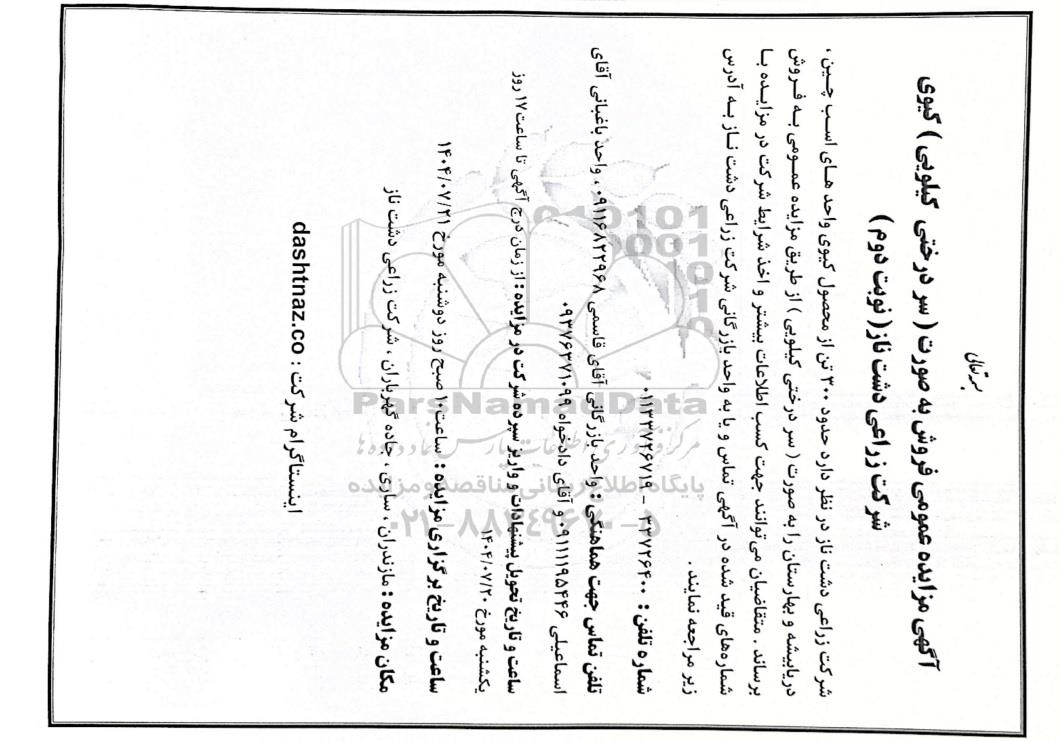 بسمه تعالی
آگهی مزایده عمومی فروش به صورت ( سر درختی کیلویی ) کیوی
شرکت زراعی دشت ناز ( نوبت دوم )
شرکت زراعی دشت ناز در نظر دارد حدود ۳۰۰ تن از محصول کیوی واحد های اسب چین ،
دریابیشه و بهارستان را به صورت ( سر درختی کیلویی ) از طریق مزایده عمومی به فروش
برساند . متقاضیان می توانند جهت کسب اطلاعات بیشتر و اخذ شرایط شرکت در مزایده با
شماره‌های قید شده در آگهی تماس و یا به واحد بازرگانی شرکت زراعی دشت ناز به آدرس
زیر مراجعه نمایند .
شماره تلفن : ۳۳۷۲۶۴۰۰ – ۰۱۱۳۳۷۲۶۷۱۹
تلفن تماس جهت هماهنگی : واحد بازرگانی آقای قاسمی ۰۹۱۱۶۸۲۲۹۶۸ ، واحد باغبانی آقای
اسماعیلی ۰۹۱۱۱۱۹۵۴۴۶ و آقای دادخواه ۰۹۳۷۶۳۷۱۰۹۹
ساعت و تاریخ تحویل پیشنهادات و واریز سپرده شرکت در مزایده : از زمان درج آگهی تا ساعت ۱۷ روز
یکشنبه مورخ ۱۴۰۴/۰۷/۲۰
ساعت و تاریخ برگزاری مزایده : ساعت ۱۰ صبح روز دوشنبه مورخ ۱۴۰۴/۰۷/۲۱
مکان مزایده : مازندران ، ساری ، جاده گهرباران ، شرکت زراعی دشت ناز
اینستاگرام شرکت : dashtnaz.co
ParsNamadData
مرکز فرآوری اطلاعات پارس نماد داده ها
پایگاه اطلاع رسانی مناقصه و مزایده
۰۲۱-۸۸۳۴۹۶۷۰-۵